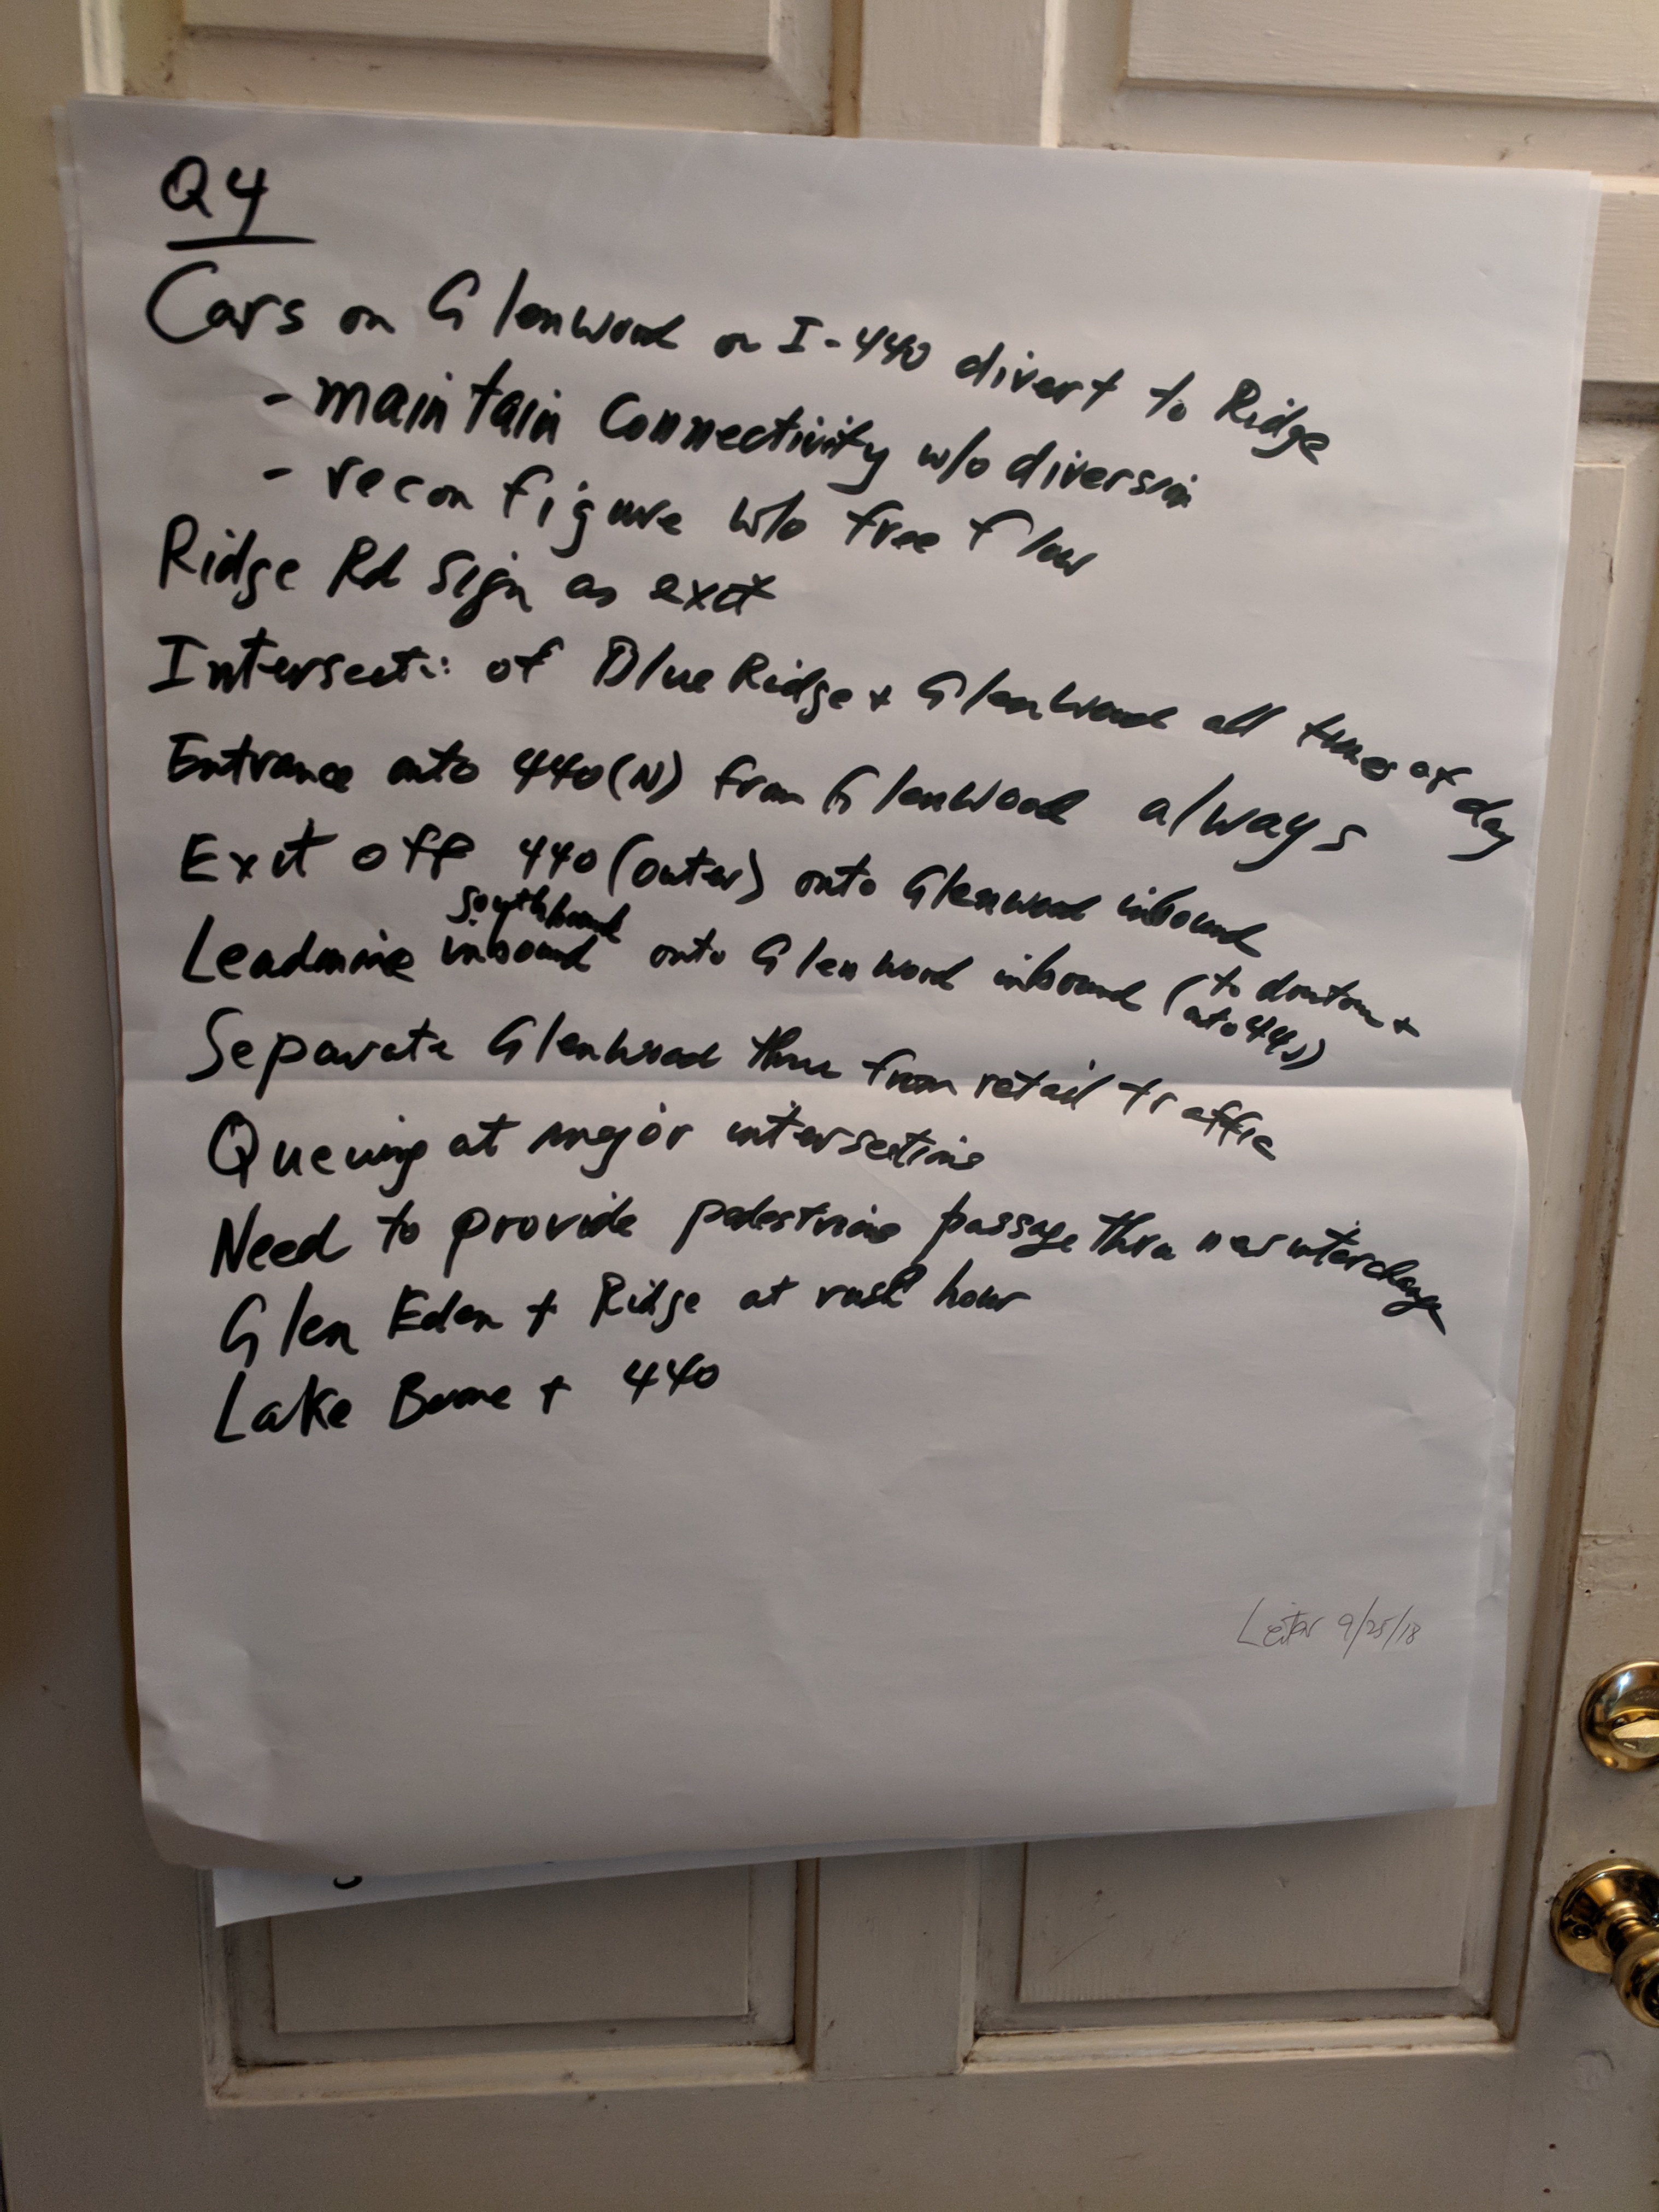 Q4
Cars on Glenwood or I-440 divert to Ridge
- maintain connectivity w/o diversion
- reconfigure w/o free flow
Ridge Rd sign as exit
Intersecti: of Blue Ridge + Glenwood all times of day
Entrance onto 440(N) from Glenwood always
Exit off 440 (outer) onto Glenwood inbound
southbound
Leadmine inbound onto Glenwood inbound (to downtown +
onto 440)
Separate Glenwood thru from retail traffic
Queuing at major intersections
Need to provide pedestrian passage thru new interchange
Glen Eden + Ridge at rush hour
Lake Boone + 440
Leiter 9/25/18